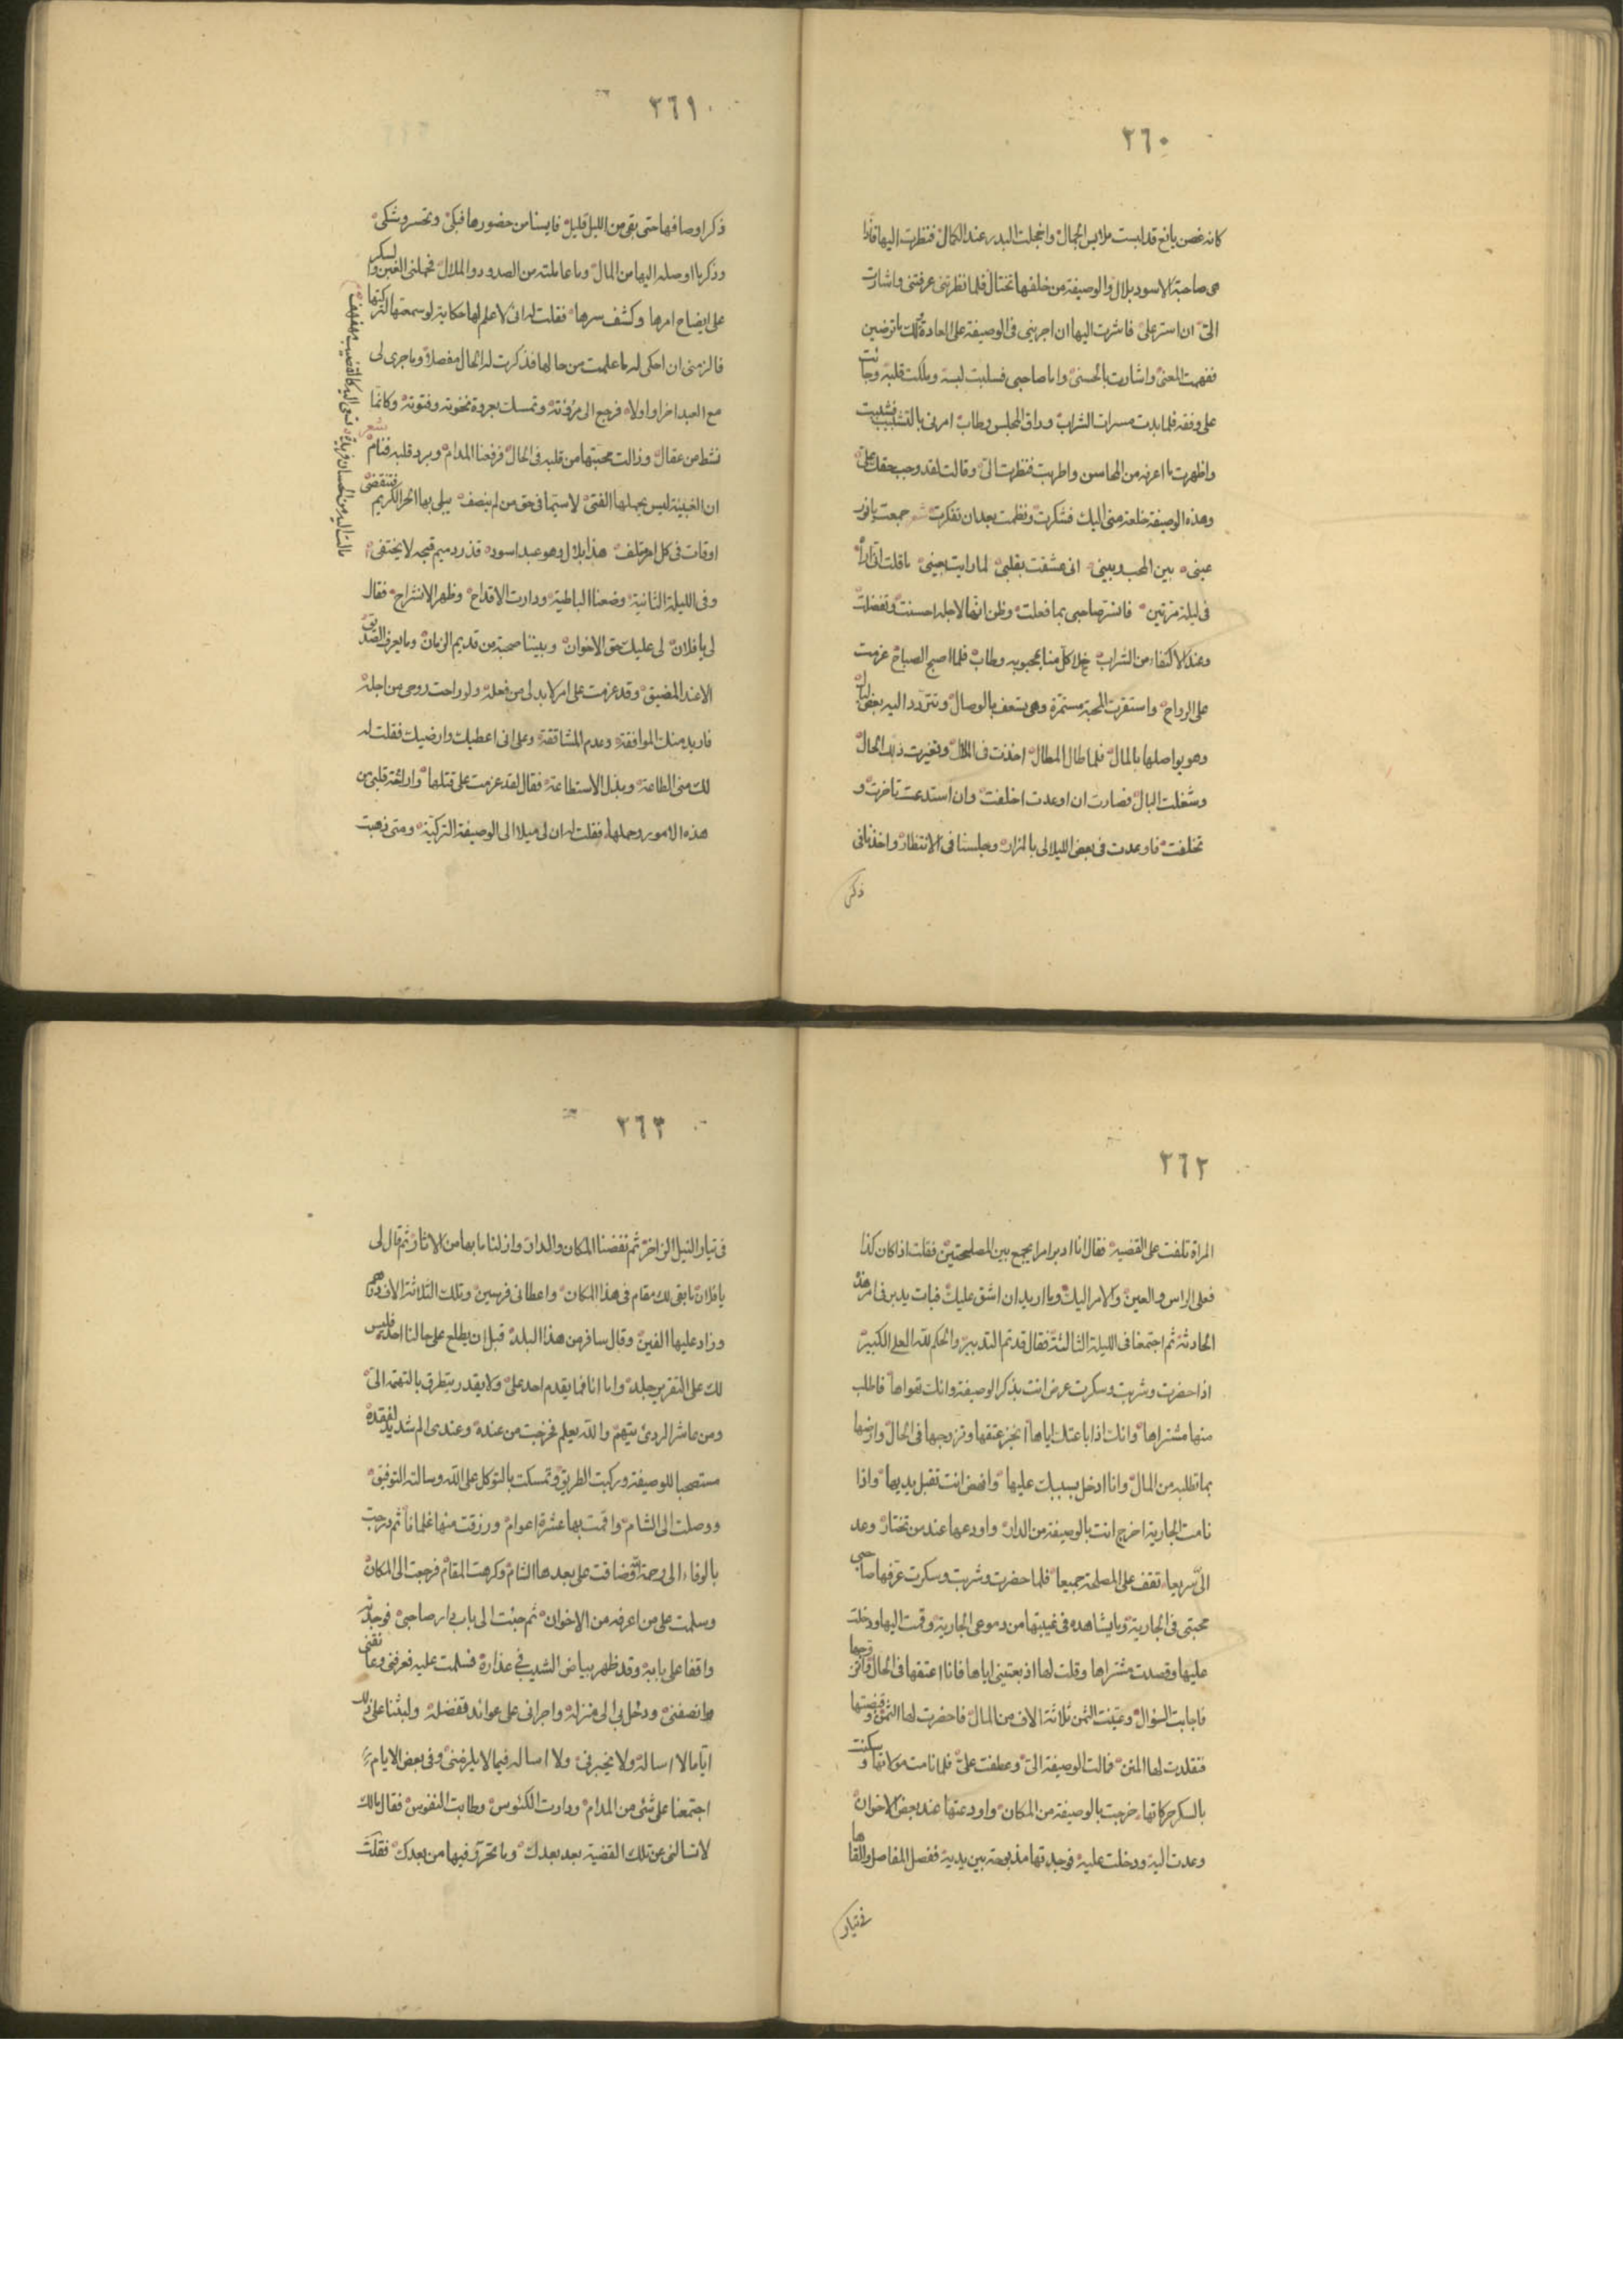 ٢٦٠
كانه غصن يانع قد لبست ملابس الجمال وانجلت البدر عند الكمال فنظرت اليها فاذا
هى صاحبة الاسود بلال والوصيفة من خلفها تختال فلما نظرتنى عرفتنى واشارت
الىّ ان استر علىّ فاشرت اليها ان اجرينى فى الوصيفة على العادة ولك ما ترضين
ففهمت المعنى واشارت بالحسنى واما صاحبى فسلبت لبه وملكت قلبه وجائت
على وفقه فلما بدت مسرات الشراب وراق المجلس وطاب امرنى بالتشبيب فشببت
واظهرت ما اعرفه من المحاسن واطربت فنظرت الىّ وقالت لقد وجب حقك علىّ
وهذه الوصيفة خلعة منى اليك فشكرت ونظمت بعد ان تفكرت شعر جمعت يا نور
عينى بين المحب وبينى انى عشقت بقلبى لما رايت بعينى ما قلت انى اراه
فى ليلة مرتين فانسر صاحبى بما فعلت وظن انها لاجله احسنت وتفضلت
وعند الاكتفاء من الشراب خلا كل منا بمحبوبه وطاب فلما اصبح الصباح عزمت
على الرواح واستقرت المحبة مستمرة وهى تسعف بالوصال وتتردد اليه بعض ليال
وهو يواصلها بالمال فلما طال المطال اخذت فى الملال وتغيرت ذلك الحال
وشغلت البال فصارت ان اوعدت اخلفت وان استدعت تاخرت و
تخلفت فاوعدت فى بعض الليالى بالمزار وجلسنا فى الانتظار واخذنا فى
ذكر
٢٦١
ذكر اوصافها حتى بقى من الليل قليل فايسنا من حضورها فبكى وتحسر وشكى
وذكر ما اوصله اليها من المال وما عاملته من الصدود والملال فحملنى الغبن والسكر
على ايضاح امرها وكشف سرها فقلت له انى لاعلم لها حكاية لو سمعتها لتركتها
فالزمنى ان احكى له ما علمت من حالها فذكرت له الحال مفصلا وما جرى لى
مع العبد اخرا واولا فرجع الى مروته وتمسك بعروة نخوته وفتوته وكانما
نشط من عقال وزالت محبتها من قلبه فى الحال فرفعنا المدام وبرد قلبه فنام شعر
ان الغبينة ليس يحملها الفتى لا سيما فى حق من لم ينصف يبلى بها الحر الكريم فتنقضى
اوقات فى كل امر تلف هذا بلال وهو عبد اسود
وفى الليلة الثانية وضعنا الباطية ودارت الاقداح وظهر الانشراح فقال
لى يا فلان لى عليك حق الاخوان وبيننا صحبة من قديم الزمان وما يعرف الصديق
الا عند المضيق وقد عزمت على امر لا بد لى من فعله ولو راحت روحى من اجله
فاريد منك الموافقة وعدم المشاققة وعلى انى اعطيك وارضيك فقلت له
لك منى الطاعة وبذل الاستطاعة فقال لقد عزمت على قتلها واراحة قلبى من
هذه الامور وحملها فقلت له ان لى ميلا الى الوصيفة التركية ومتى ذهبت
٢٦٢
المراة تلفت على القضية فقال انا ادبر امرا يجمع بين المصلحتين فقلت اذا كان كذا
فعلى الراس والعين والامر اليك وما اريد ان اشق عليك فبات يدبر فى امر هذه
الحادثة ثم اجتمعنا فى الليلة الثالثة فقال قد تم التدبير والحكم لله العلى الكبير
اذا حضرت وشربت وسكرت عرض انت بذكر الوصيفة وانك تهواها فاطلب
منها مشتراها وانك اذا باعتك اياها انجز عتقها وتزوجها فى الحال وارضها
بما تطلبه من المال وانا ادخل بسببك عليها وانهض انت تقبل يديها واذا
نامت الجارية اخرج انت بالوصيفة من الدار واودعها عند من تختار وعد
الىّ سريعا تقف على المصلحة جميعا فلما حضرت وشربت وسكرت عرفها صاحبى
محبتى فى الجارية وما يشاهده فى غيبتها من دموعى الجارية وقمت اليها ودخلت
عليها وقصدت مشتراها وقلت لها اذ بعتينى اياها فانا اعتقها فى الحال واتزوجها
فاجابت السؤال وعينت الثمن ثلاثة الاف من المال فاحضرت لها الثمن وقبضتها
فتقلدت لها المنن فالت الوصيفة الىّ وعطفت علىّ فلما نامت مولاتها وسكنت
بالسكر حركاتها خرجت بالوصيفة من المكان واودعتها عند بعض الاخوان
وعدت اليه ودخلت عليه فوجدتها مذبوحة بين يديه ففصل المفاصل والقاها
فى تيار
٢٦٣
فى تيار النيل الزاخر ثم نفضنا المكان والدار وازلنا ما بها من الاثار ثم قال لى
يا فلان ما بقى لك مقام فى هذا المكان واعطانى فرسين وتلك الثلاثة الاف درهم
وزاد عليها الفين وقال سافر من هذا البلد قبل ان يطلع على حالنا احد فليس
لك على التقرير جلد واما انا فما يقدم احد علىّ ولا يقدر يتطرق بالتهمة الىّ
ومن عاشر الردئ يتهم والله يعلم فخرجت من عنده وعندى الم شديد لفقده
مستصحبا للوصيفة وركبت الطريق وتمسكت بالتوكل على الله وسالته التوفيق
ووصلت الى الشام واقمت بها عشرة اعوام ورزقت منها غلمانا ثم درجت
بالوفاء الى رحمة الله فضاقت على بعدها الشام وكرهت المقام فرجعت الى المكان
وسلمت على من اعرفه من الاخوان ثم جئت الى باب دار صاحبى فوجدته
واقفا على بابه وقد ظهر بياض الشيب فى عذاره فسلمت عليه فعرفنى وعانقنى
وانصفنى ودخل بى الى منزله واجرانى على عوائد تفضله ولبثنا على ذلك
اياما لا اساله ولا يخبرنى ولا اساله فيما لا يلزمنى وفى بعض الايام
اجتمعنا على شئ من المدام ودارت الكئوس وطابت النفوس فقال مالك
لا تسالنى عن تلك القضية بعد بعدك وما تحرر فيها من بعدك فقلت